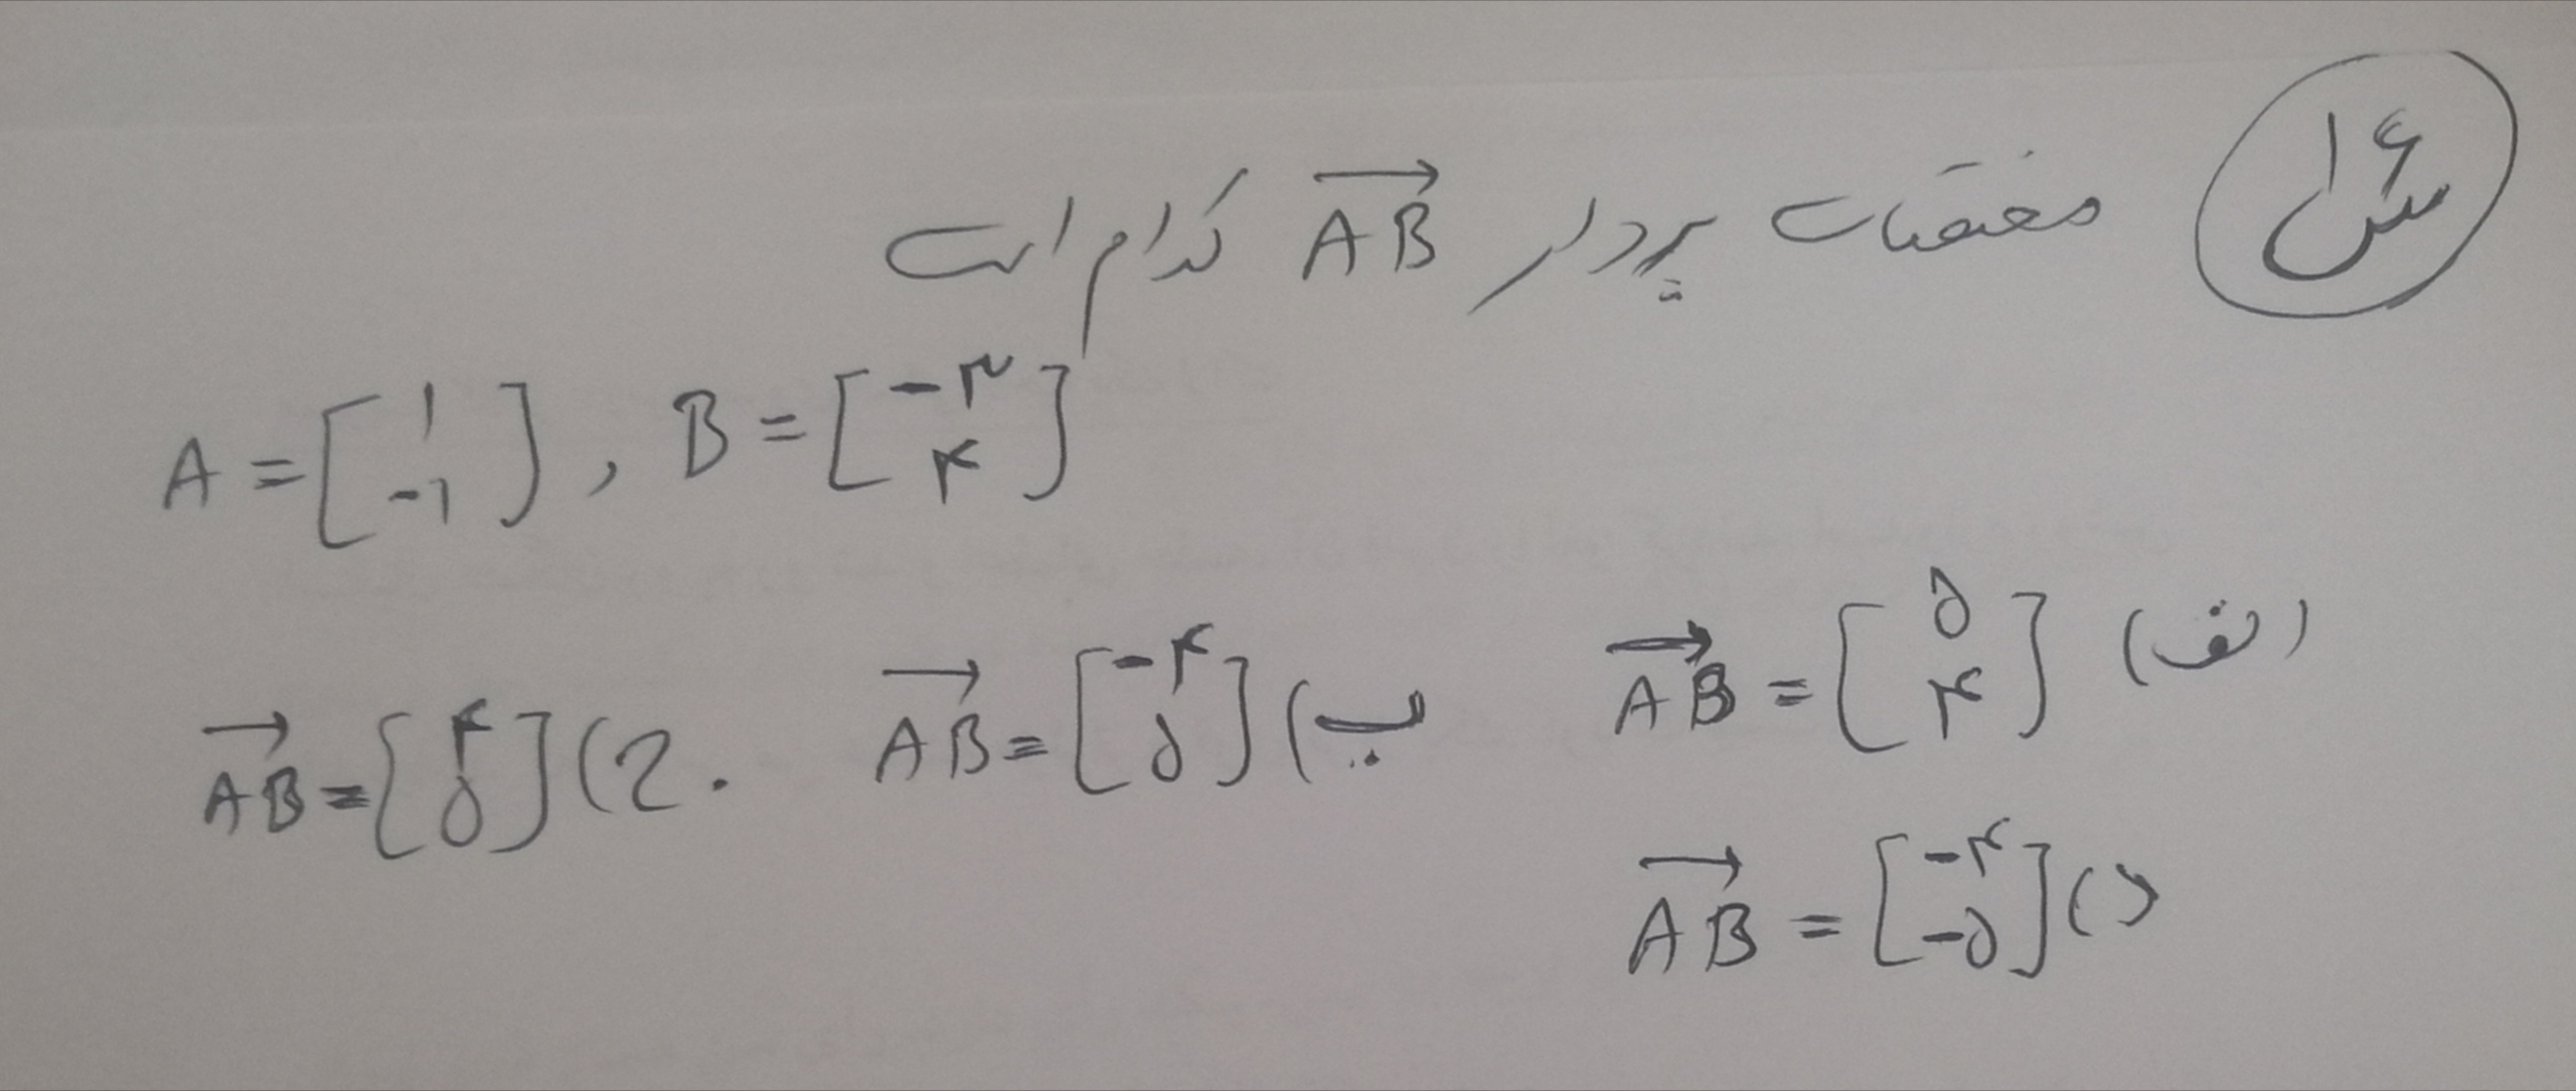 س۱۶ مختصات بردار AB کدام است
A = [۱ -۱] , B = [-۳ ۴]
الف) AB = [۵ ۴] ب) AB = [-۴ ۵] ج) AB = [۴ ۵]
د) AB = [-۴ -۵]